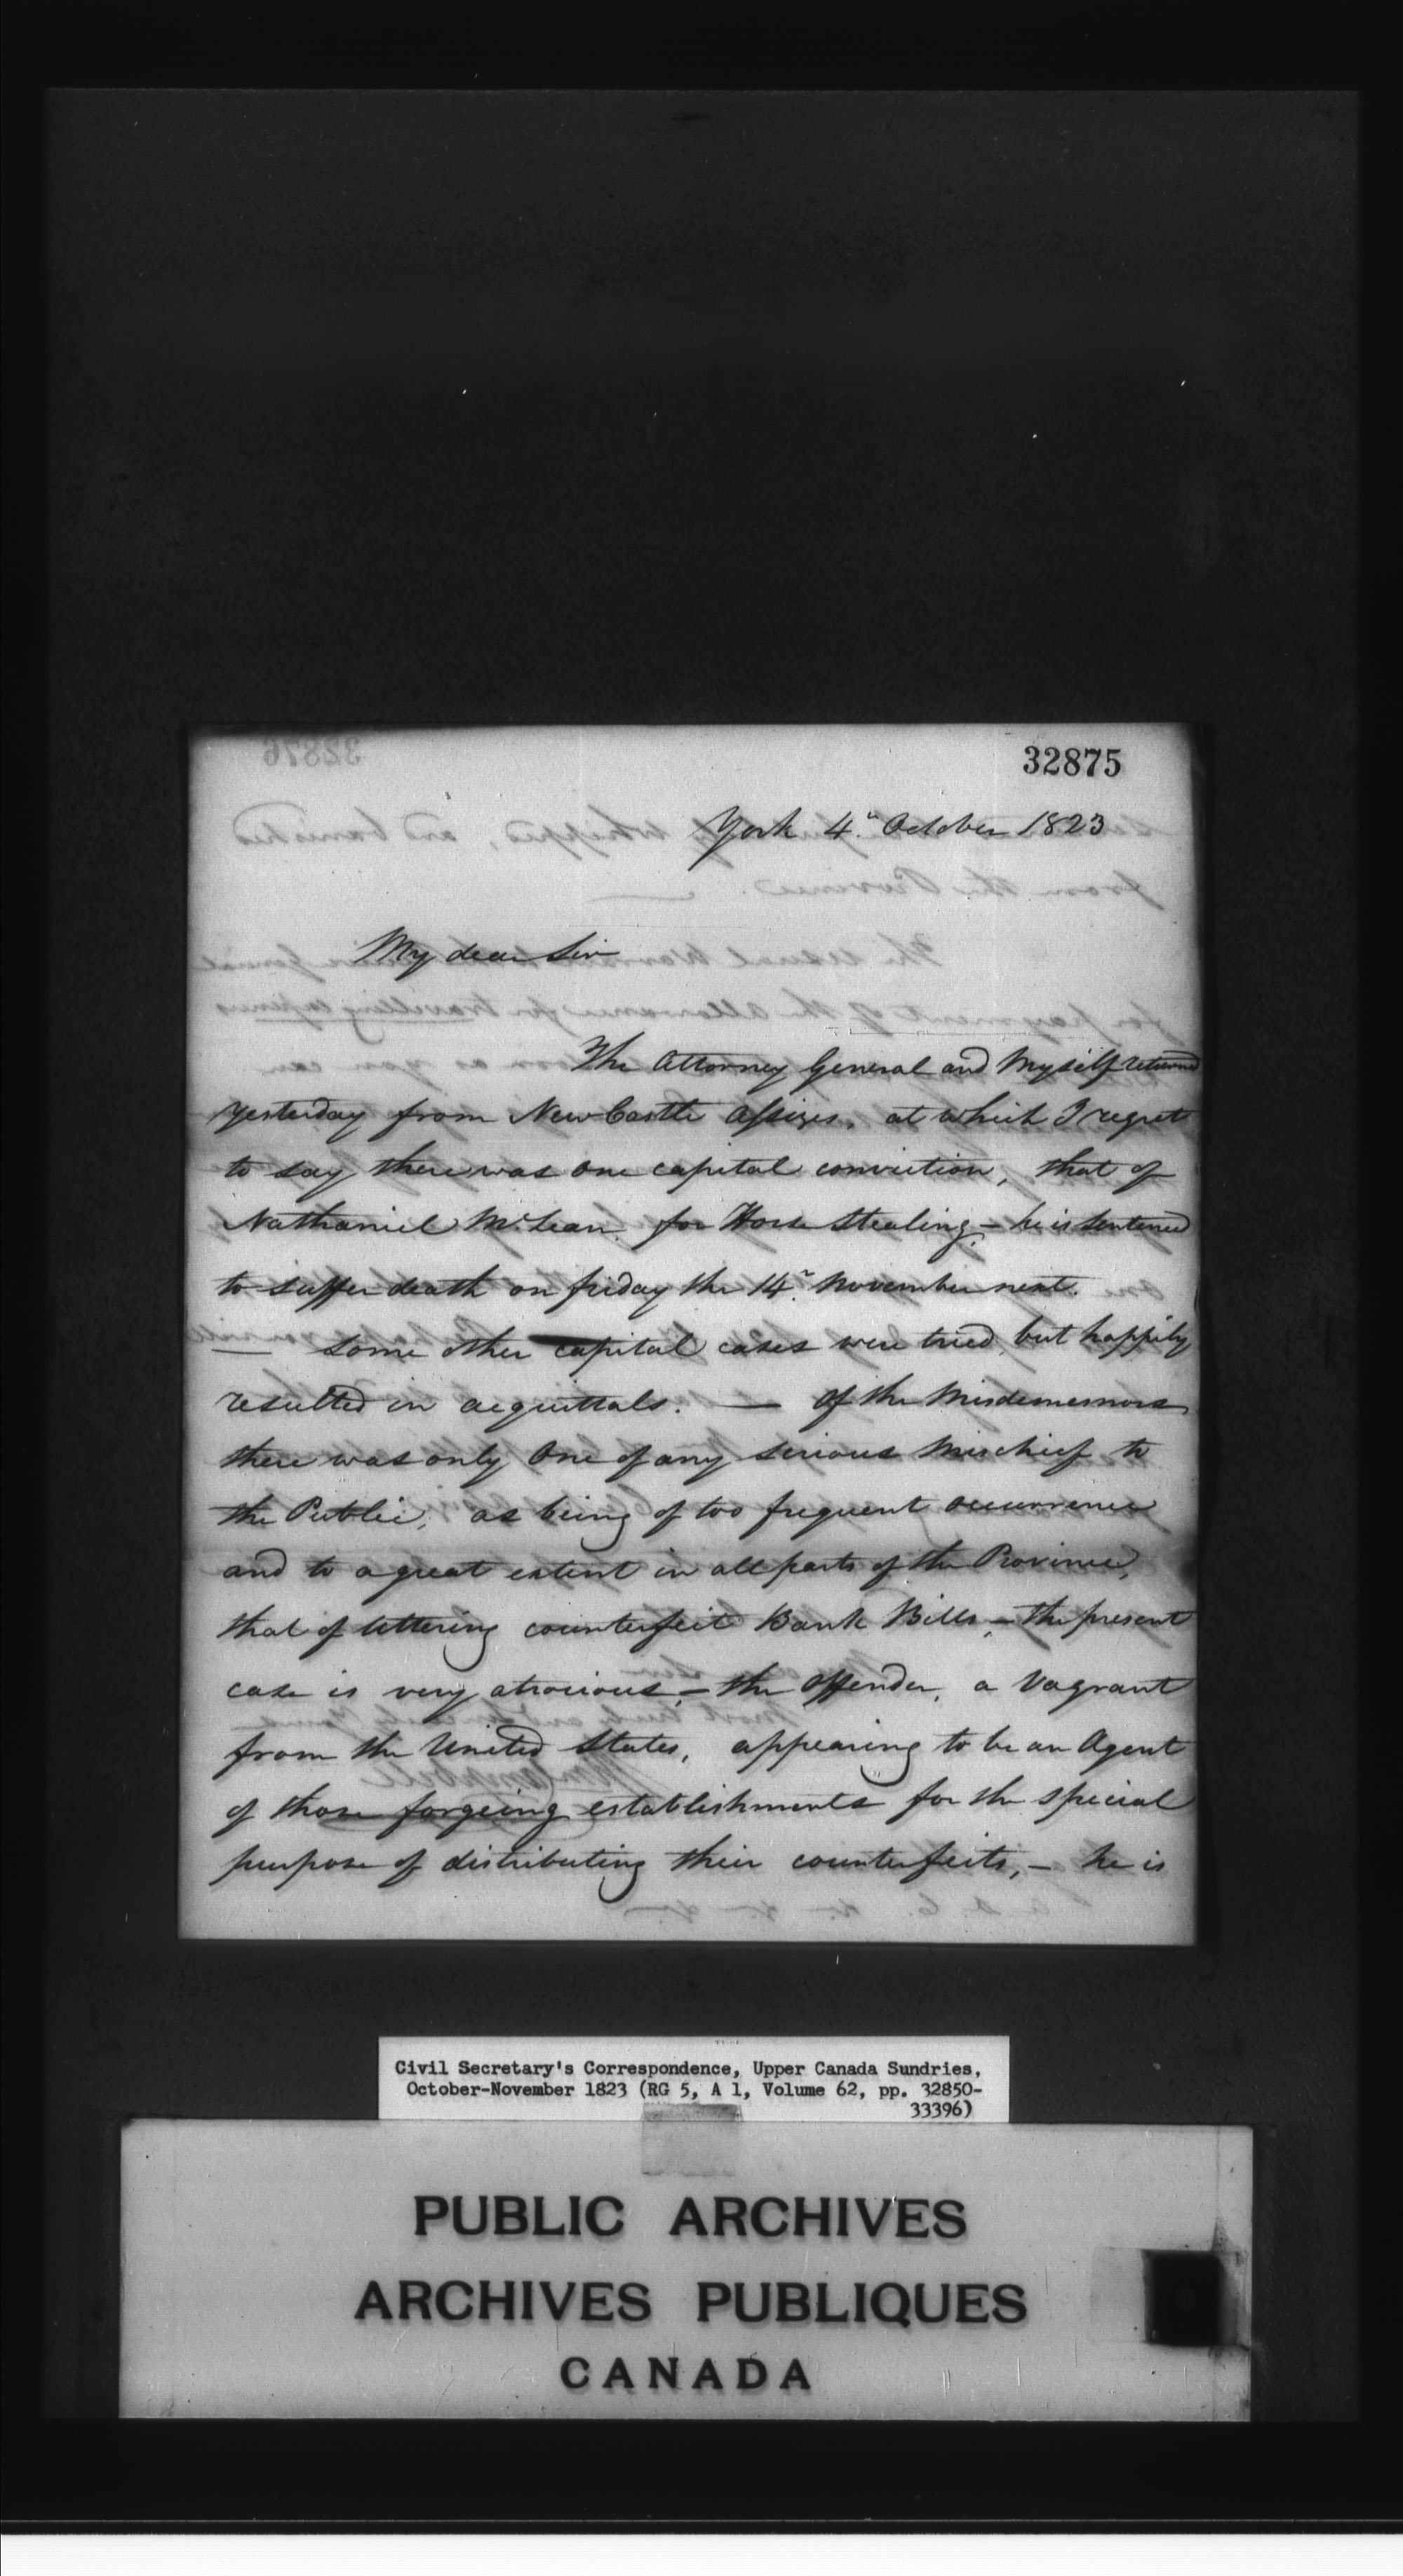 32875
York 4th October 1823
My dear Sir
The Attorney General and Myself returned
yesterday from NewCastle Assizes, at which I regret
to say there was one capital conviction, that of
Nathaniel McLean for Horse Stealing – he is sentenced
to suffer death on friday the 14th November next.
— some other capital cases were tried, but happily
resulted in acquittals. — Of the Misdemesnors
there was only One of any serious Mischief to
the Public, as being of too frequent occurrence
and to a great extent in all parts of the Province,
that of uttering counterfeit Bank Bills, – the present
case is very atrocious, – the Offender, a Vagrant
from the United States, appearing to be an Agent
of those forgeing establishments for the special
purpose of distributing their counterfeits, – he is
Civil Secretary's Correspondence, Upper Canada Sundries,
October-November 1823 (RG 5, A 1, Volume 62, pp. 32850-
33396)
PUBLIC ARCHIVES
ARCHIVES PUBLIQUES
CANADA